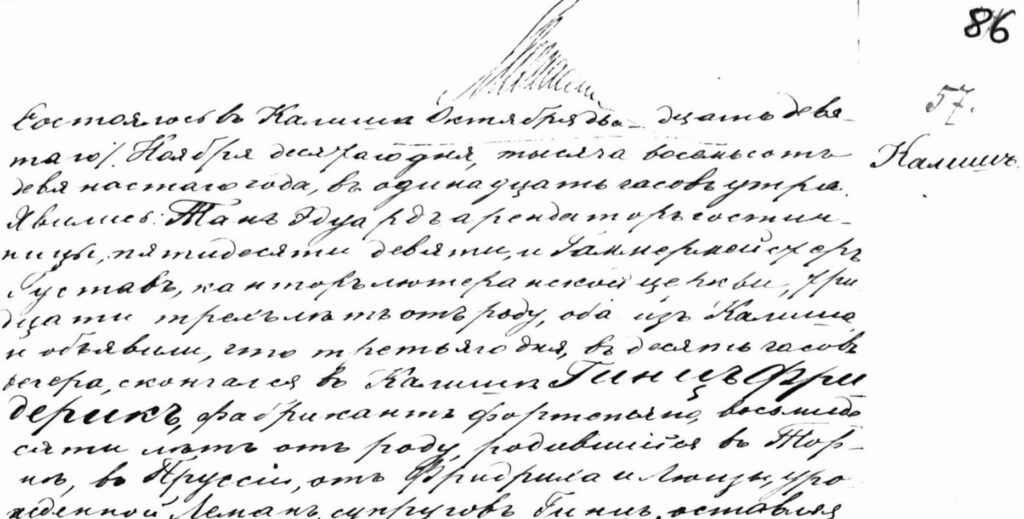 86
57.
Калишъ.
Состоялось въ Калишѣ Октября два дцать девя-
таго/ Ноября десятаго дня, тысяча восемьсотъ
девяностаго года, въ одинадцать часовъ утра.
Явились: Эдуардъ арендаторъ гостин-
ницы, пятидесяти девяти, и Гаммермейстеръ
Густавъ, канторъ лютеранской церкви, три
дцати трехъ лѣтъ отъ роду, оба изъ Калиша,
и объявили, что третьяго дня, въ десять часовъ
вечера, скончался въ Калишѣ Гинцъ Фри
дерикъ, фабрикантъ фортепьяно, восьмиде
сяти лѣтъ отъ роду, родившійся въ Тор-
нѣ, въ Пруссіи, отъ Фридриха и Луизы, уро
жденной Леманъ, супруговъ Гинцъ, оставляя